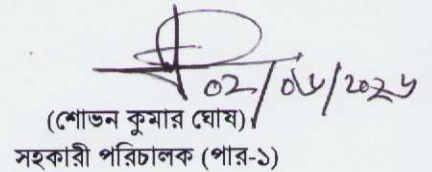 ০২/০৬/২০২৬
(শোভন কুমার ঘোষ)
সহকারী পরিচালক (পার-১)